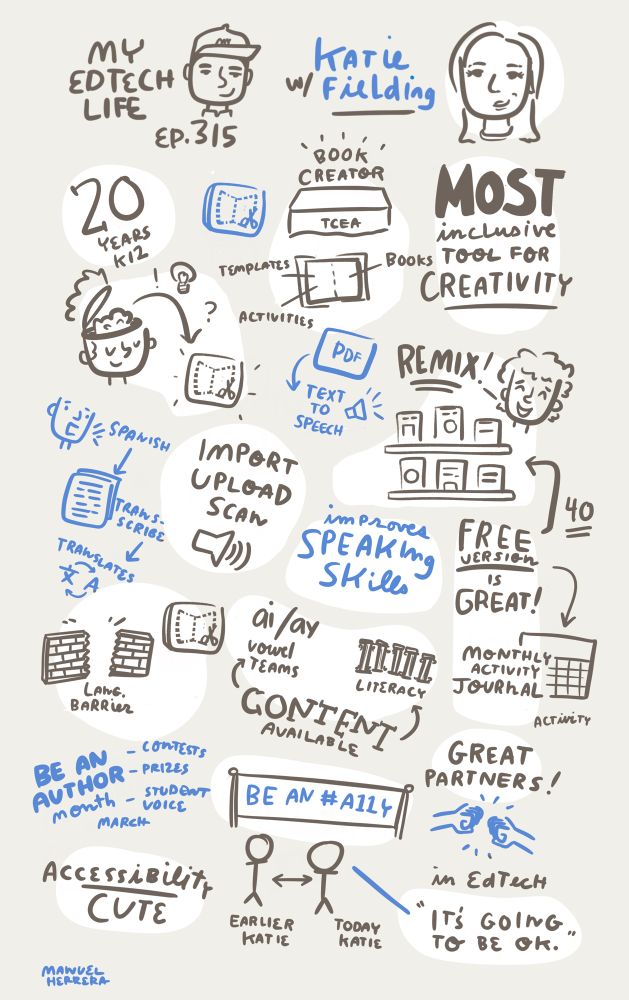 MY
EDTECH
LIFE
EP.315
KATIE
w/ FIELDING
20
YEARS
K12
BOOK
CREATOR
TCEA
TEMPLATES
BOOKS
ACTIVITIES
MOST
inclusive
TOOL FOR
CREATIVITY
!
?
PDF
TEXT
TO
SPEECH
REMIX!
SPANISH
TRANS-
SCRIBE
TRANSLATES
文 A
IMPORT
UPLOAD
SCAN
improves
SPEAKING
SKILLS
40
FREE
VERSION
IS
GREAT!
MONTHLY
ACTIVITY
JOURNAL
ACTIVITY
LANG.
BARRIER
ai/ay
VOWEL
TEAMS
LITERACY
CONTENT
AVAILABLE
BE AN
AUTHOR
month
MARCH
- CONTESTS
- PRIZES
- STUDENT
VOICE
BE AN #A11Y
GREAT
PARTNERS!
in EDTECH
ACCESSIBILITY
CUTE
EARLIER
KATIE
TODAY
KATIE
"IT'S GOING
TO BE OK."
MANUEL
HERRERA